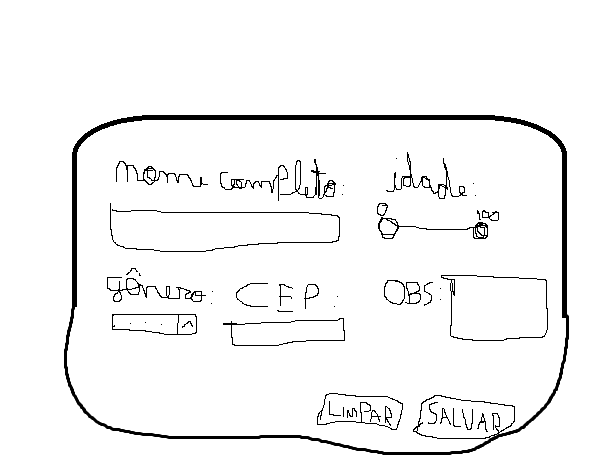 nome completo: idade:
0 100
gênero: CEP: OBS:
LIMPAR SALVAR